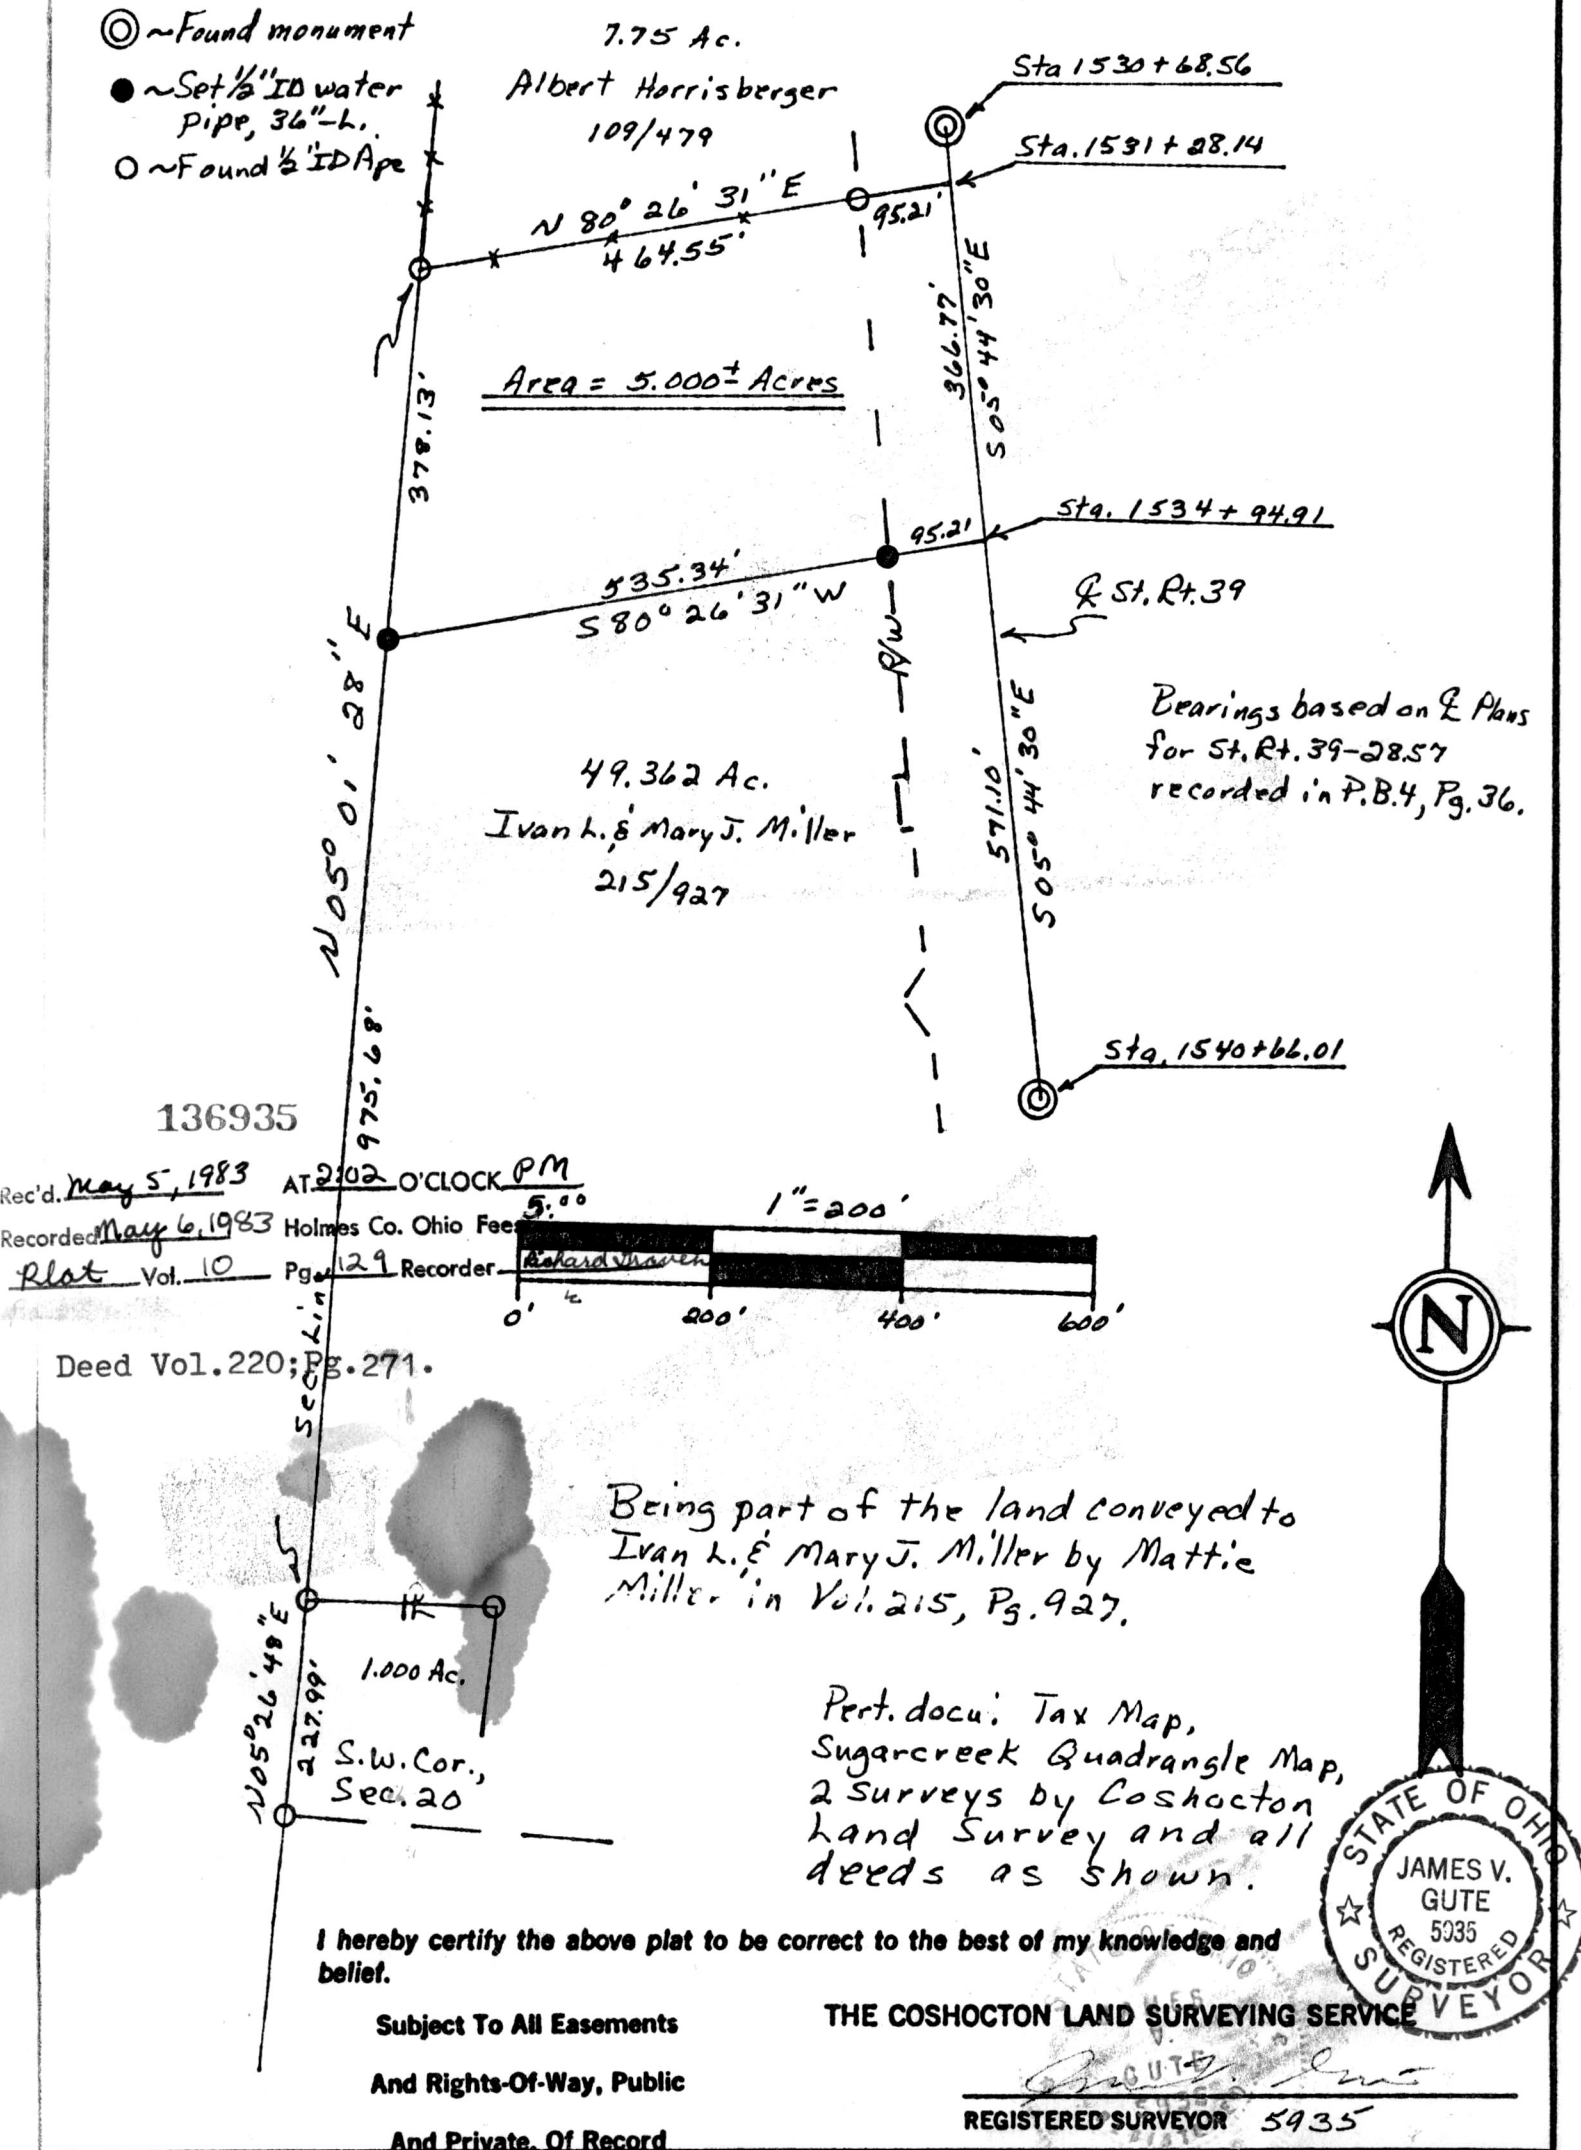 ~Found monument
~Set 1/2" ID water
pipe, 36"-L.
~Found 1/2" ID Pipe
7.75 Ac.
Albert Horrisberger
109/479
Sta 1530+68.56
Sta. 1531+28.14
N 80° 26' 31" E
464.55'
95.21'
366.77'
S 05° 44' 30" E
Area = 5.000± Acres
378.13'
Sta. 1534+94.91
95.21
535.34'
S 80° 26' 31" W
℄ St. Rt. 39
R/W
N 05° 01' 28" E
Bearings based on ℄ Plans
for St. Rt. 39-28.57
recorded in P.B. 4, Pg. 36.
49.362 Ac.
Ivan L. & Mary J. Miller
215/927
571.10'
S 05° 44' 30" E
Sta. 1540+66.01
975.68'
136935
Rec'd. May 5, 1983 AT 2:02 O'CLOCK PM
Recorded May 6, 1983 Holmes Co. Ohio Fee 5.00
Plat Vol. 10 Pg. 129 Recorder Richard Graven
1"=200'
0' 200' 400' 600'
Sec. Line
Deed Vol.220;Pg.271.
N
Being part of the land conveyed to
Ivan L. & Mary J. Miller by Mattie
Miller in Vol. 215, Pg. 927.
N 05° 26' 48" E
227.99'
1.000 Ac.
S.W. Cor.,
Sec. 20
Pert. docu: Tax Map,
Sugarcreek Quadrangle Map,
2 surveys by Coshocton
Land Survey and all
deeds as shown.
STATE OF OHIO
JAMES V.
GUTE
5935
REGISTERED
SURVEYOR
I hereby certify the above plat to be correct to the best of my knowledge and
belief.
Subject To All Easements
And Rights-Of-Way, Public
And Private, Of Record
THE COSHOCTON LAND SURVEYING SERVICE
REGISTERED SURVEYOR 5935